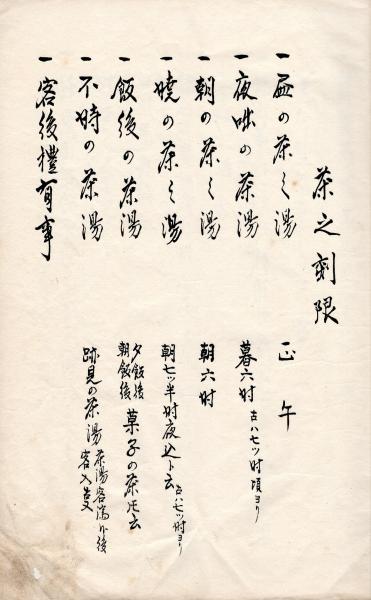 茶之刻限
一昼の茶之湯 正午
一夜咄の茶湯 暮六时 古ハ七ツ时頃ヨリ
一朝の茶之湯 朝六时
一暁の茶之湯 朝七ツ半时夜込ト云 古ハ七ツ时ヨリ
一飯後の茶湯 夕飯後 朝飯後 菓子の茶トモ云
一不時の茶湯 跡見の茶湯 茶湯客済
一客後禮有事